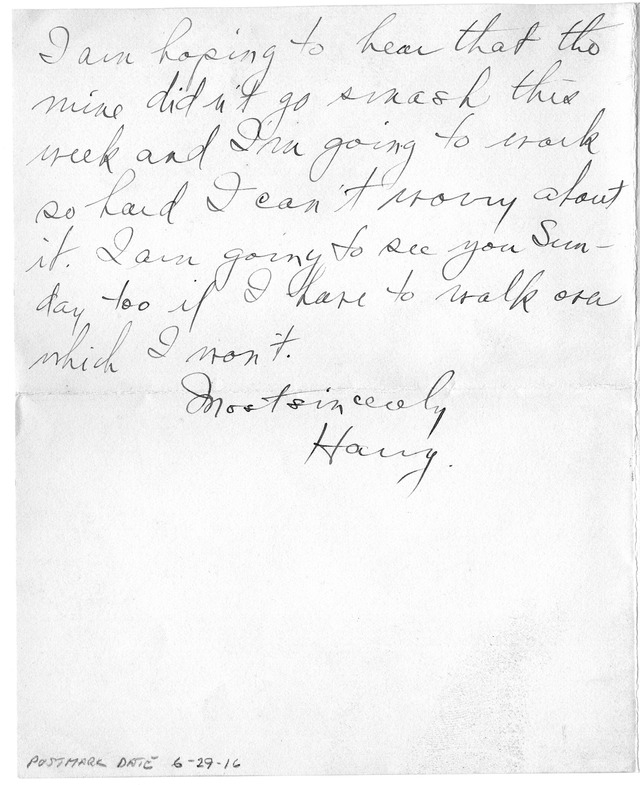 I am hoping to hear that the
mine didn't go smash this
week and I'm going to work
so hard I can't worry about
it. I am going to see you Sun-
day too if I have to walk over
which I won't.
Most sincerely
Harry.
POSTMARK DATE 6-29-16